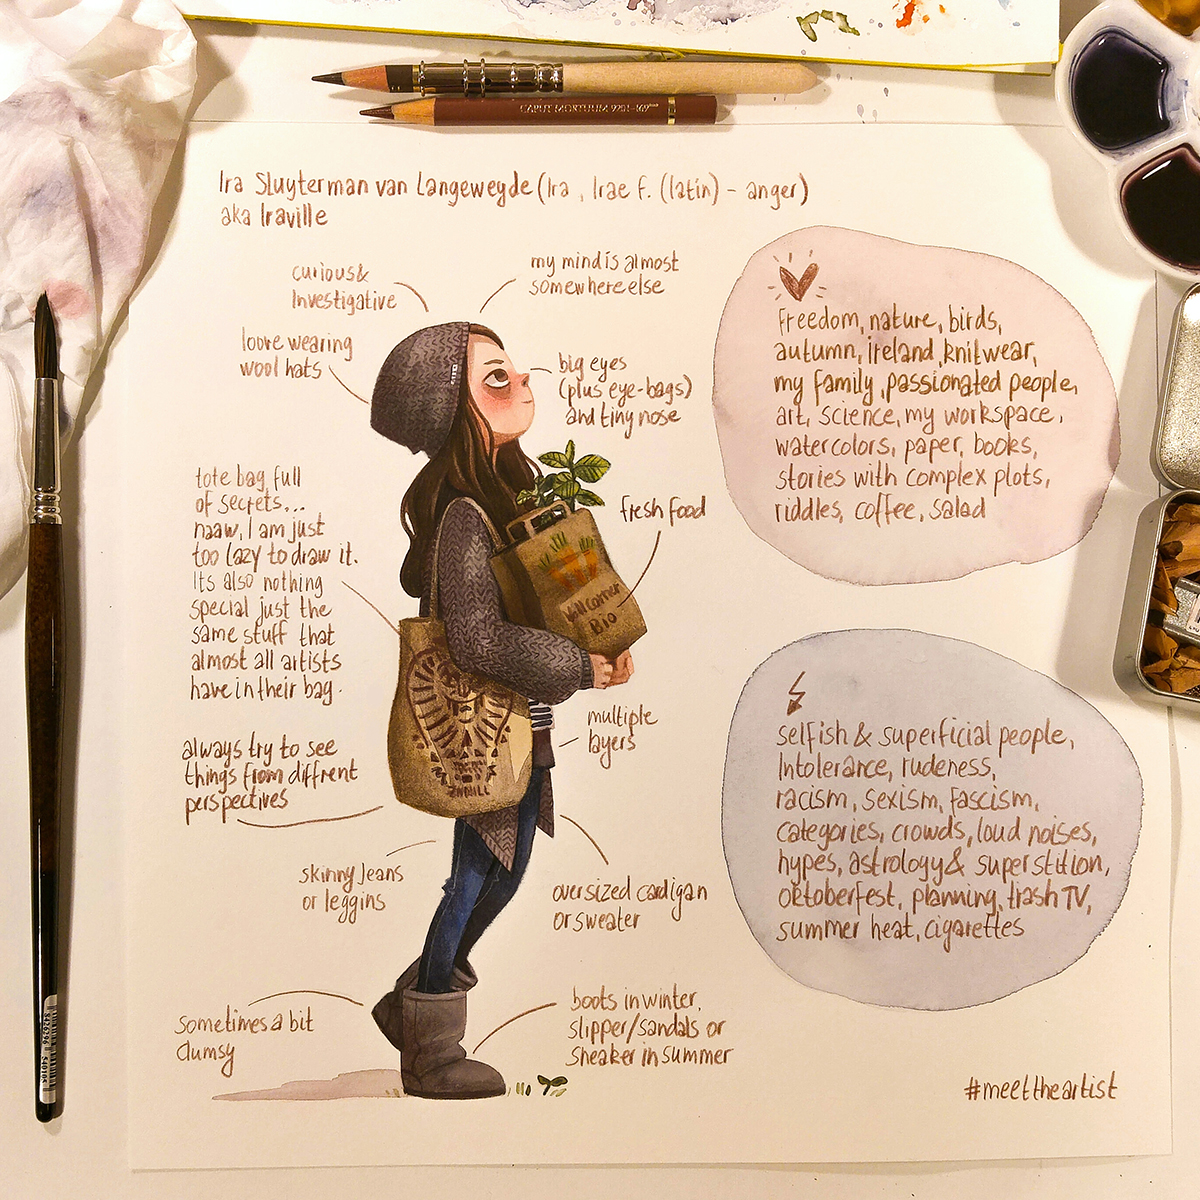 CAPUT MORTUUM 9201-169
Ira Sluyterman van Langeweyde (Ira, Irae f. (latin) - anger)
aka Iraville
curious &
Investigative
my mind is almost
somewhere else
loove wearing
wool hats
big eyes
(plus eye-bags)
and tiny nose
tote bag full
of secrets...
naaw, I am just
too lazy to draw it.
Its also nothing
special just the
same stuff that
almost all artists
have in their bag.
fresh food
Corner
Bio
always try to see
things from diffrent
perspectives
multiple
layers
skinny Jeans
or leggins
oversized cardigan
or sweater
sometimes a bit
clumsy
boots in winter,
slipper/sandals or
sneaker in summer
freedom, nature, birds,
autumn, ireland, knitwear,
my family, passionated people,
art, science, my workspace,
watercolors, paper, books,
stories with complex plots,
riddles, coffee, salad
selfish & superficial people,
Intolerance, rudeness,
racism, sexism, fascism,
categories, crowds, loud noises,
hypes, astrology & superstition,
oktoberfest, planning, trash TV,
summer heat, cigarettes
#meettheartist